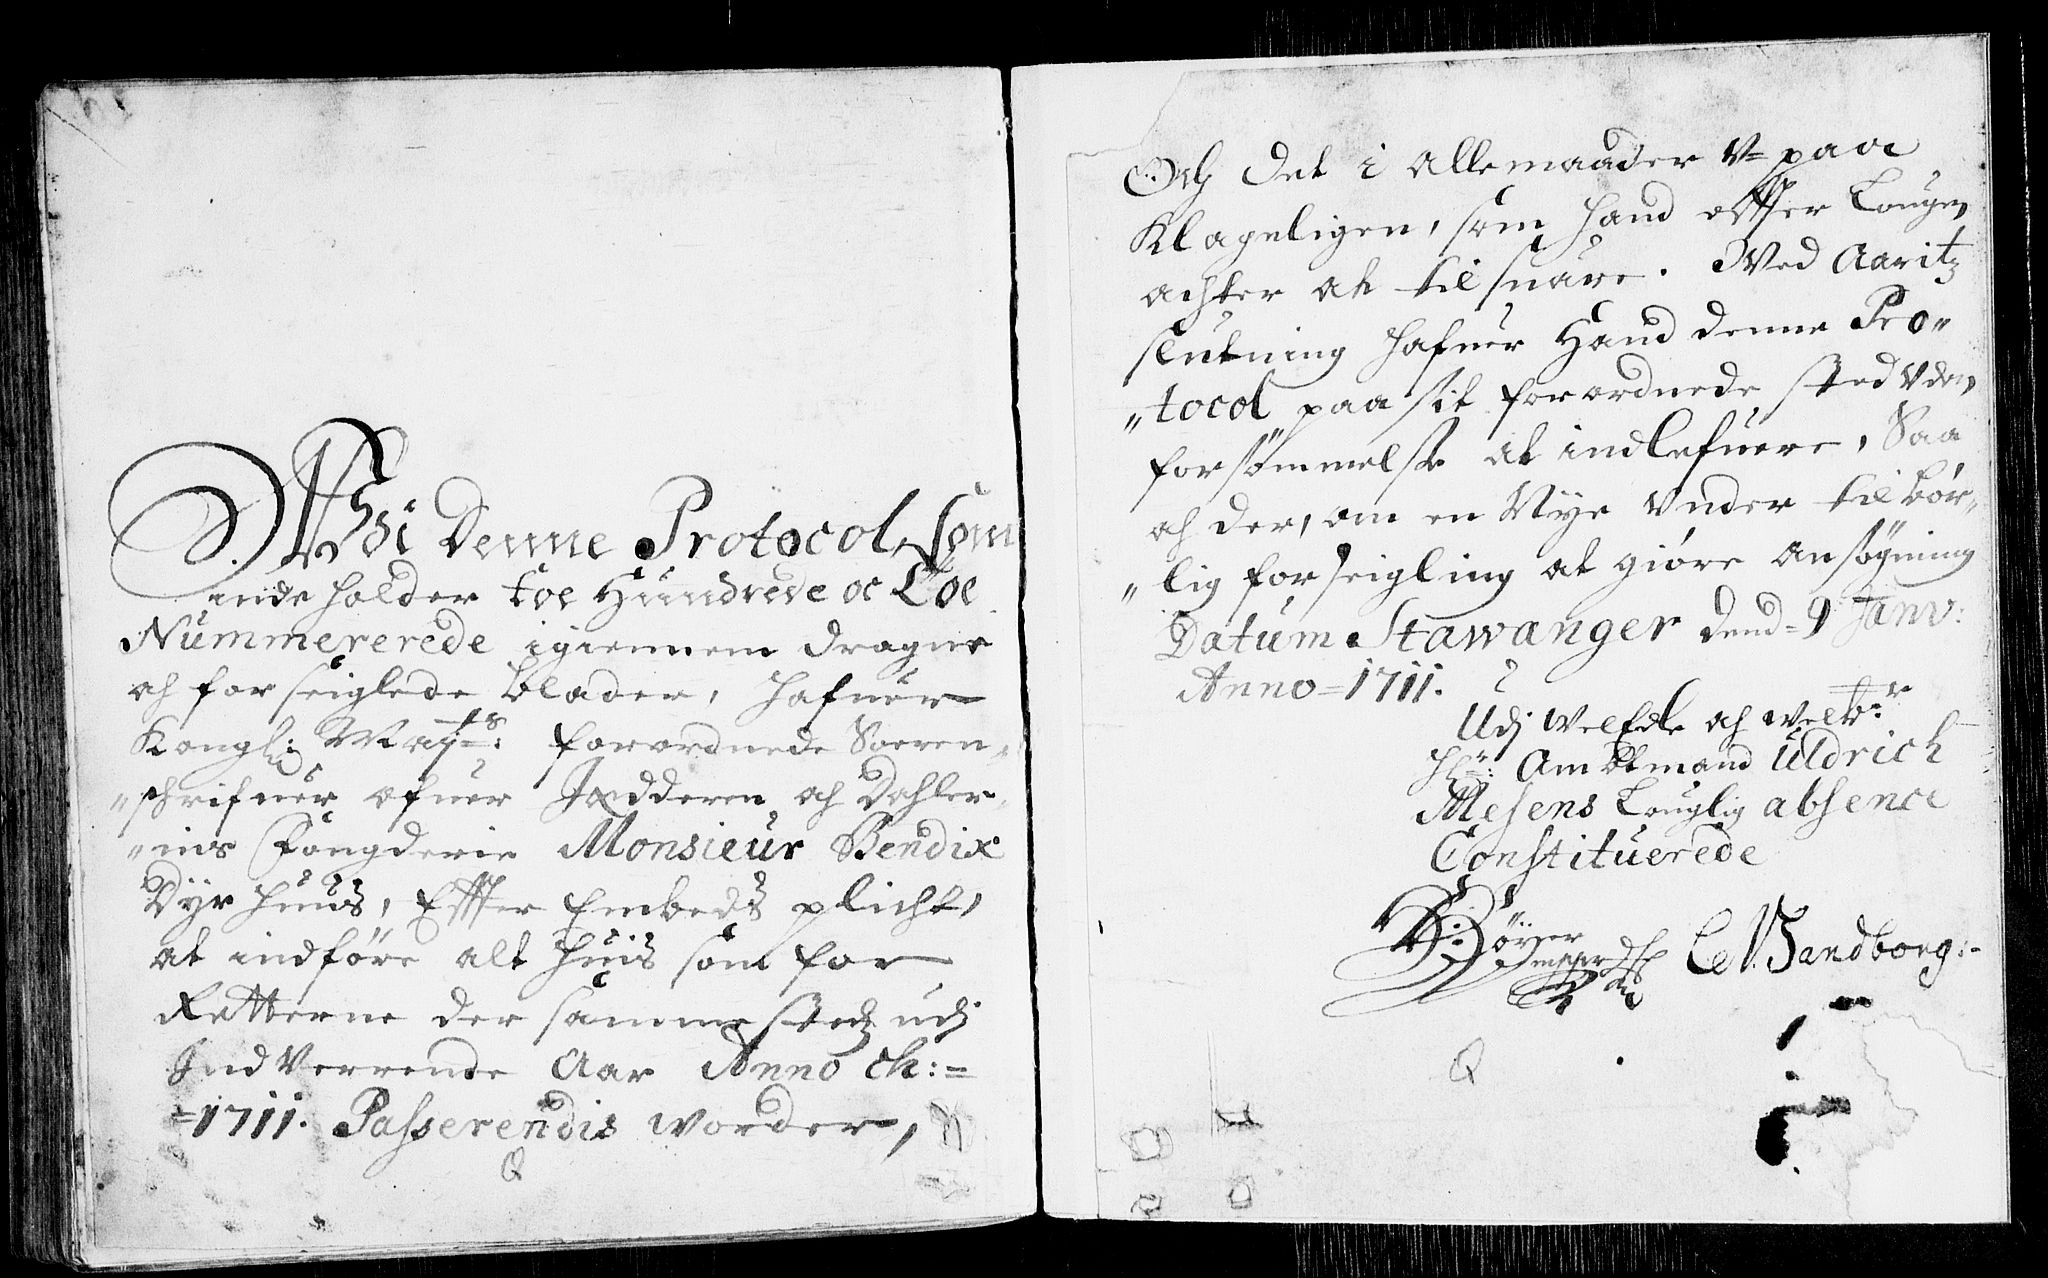 Udi Denne Protocol, som
inde holder toe Hundrede oc Toe
Nummererede igiennem dragne
och forseiglede blader, hafuer
Kongl: Mayts: forordnede Soeren„
„schrifuer ofuer Jædderen och Dahler„
„nis Fougderie Monsieur Bendix
Dyrhuus, Effter Embeds plicht,
at indføre alt huis som for
Retterne der sammesteds udj
Indverrende Aar Anno Ch:=
=1711. Passerendis worder,
Och det i allemaader V= paa
Klageligen, som hand effter Lougen
achter at tilsuare. Wed Aaritz
slutning hafuer Hand denne Pro„
„tocol paa sit forordnede sted Uden
forsømmelse at indlefuere, Saa
och der, om en Nye Under tilbør„
„lig forseigling at giøre ansøgning
Datum Stawanger dend= 9 Janv:
Anno=1711.
Udj WelEdle och welbr
Hr: Ambtmand Uldrich
Mesens Louglig absence
Constituerede
Søyer
meyer
Sandborg:-